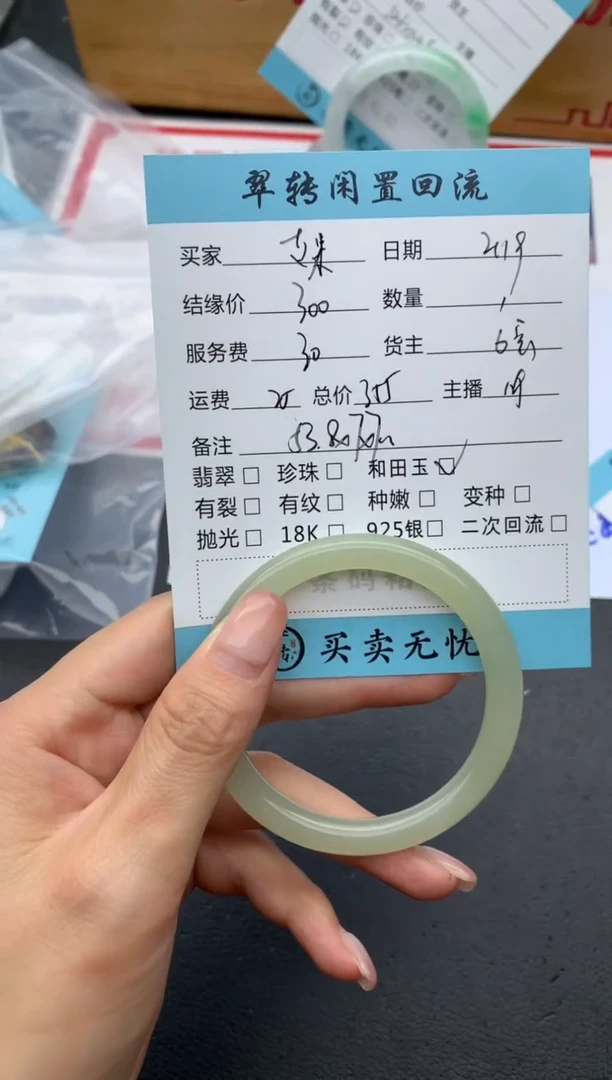 翠转闲置回流
买家 日期 219
结缘价 300 数量 1
服务费 30 货主
运费 25 总价 355 主播
备注 53.8x7x7m
翡翠□ 珍珠□ 和田玉☑
有裂□ 有纹□ 种嫩□ 变种□
抛光□ 18K□ 925银□ 二次回流□
买卖无忧